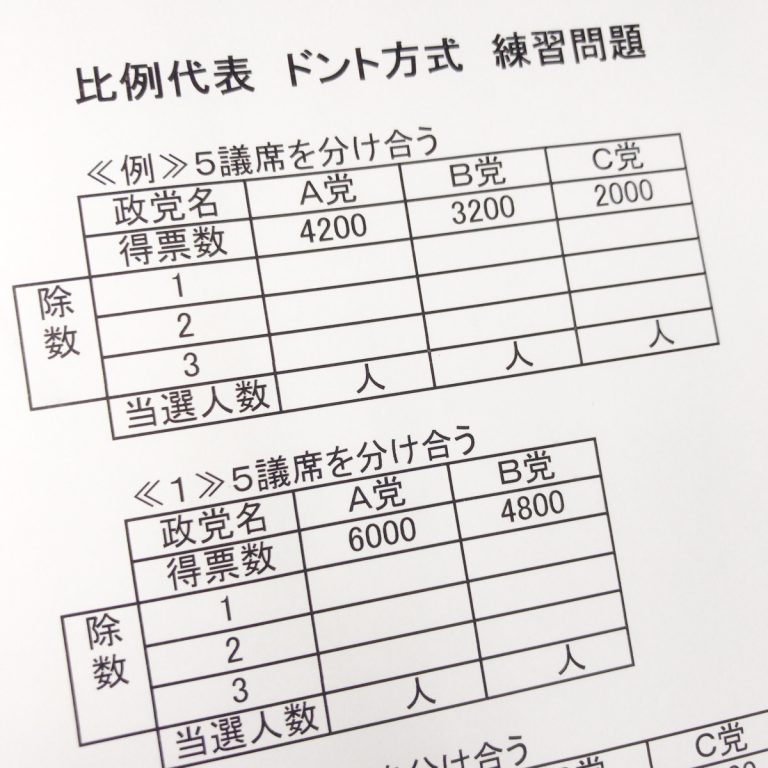 比例代表 ドント方式 練習問題
≪例≫５議席を分け合う
政党名 A党 B党 C党
得票数 4200 3200 2000
除数
1
2
3
当選人数 人 人 人
≪１≫５議席を分け合う
政党名 A党 B党
得票数 6000 4800
除数
1
2
3
当選人数 人 人
を分け合う
C党